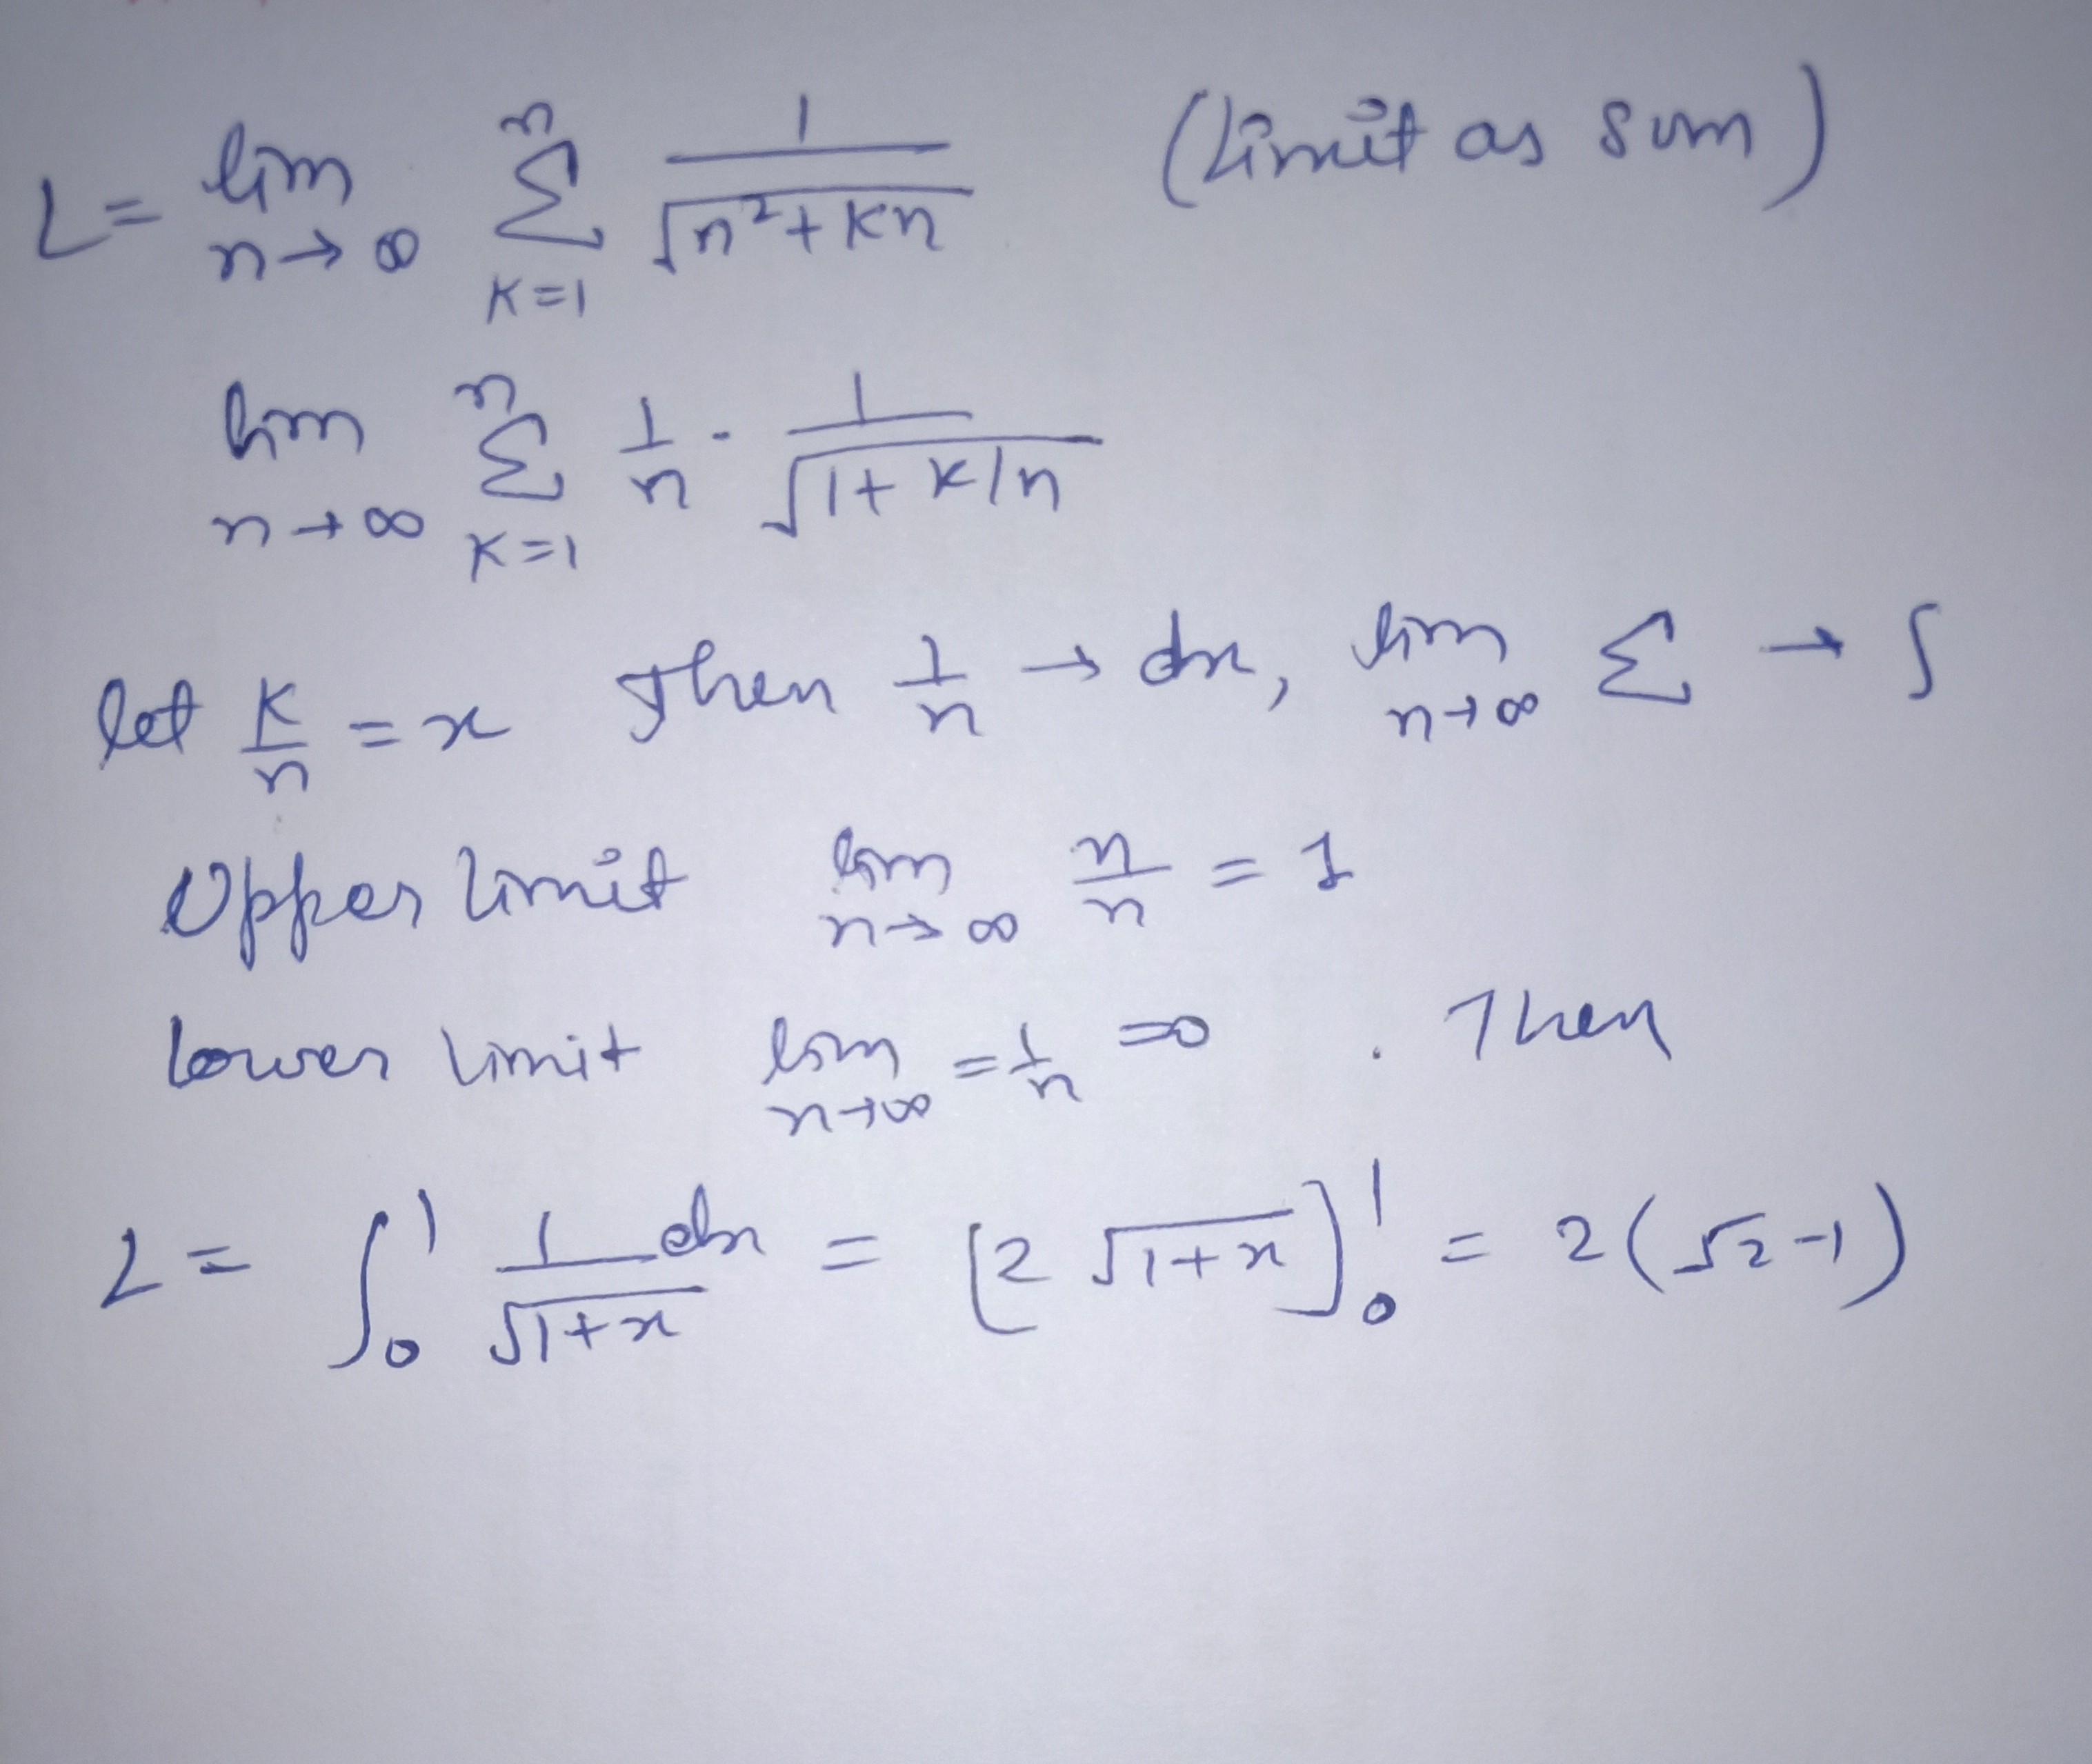 L = lim n→∞ n Σ K=1 1/√(n²+Kn) (limit as sum)
lim n→∞ n Σ K=1 1/n · 1/√(1+K/n)
let K/n = x Then 1/n → dx, lim n→∞ Σ → ∫
Upper limit lim n→∞ n/n = 1
lower limit lim n→∞ = 1/n = 0 . Then
L = ∫₀¹ 1/√(1+x) dx = [2√(1+x)]₀¹ = 2(√2-1)